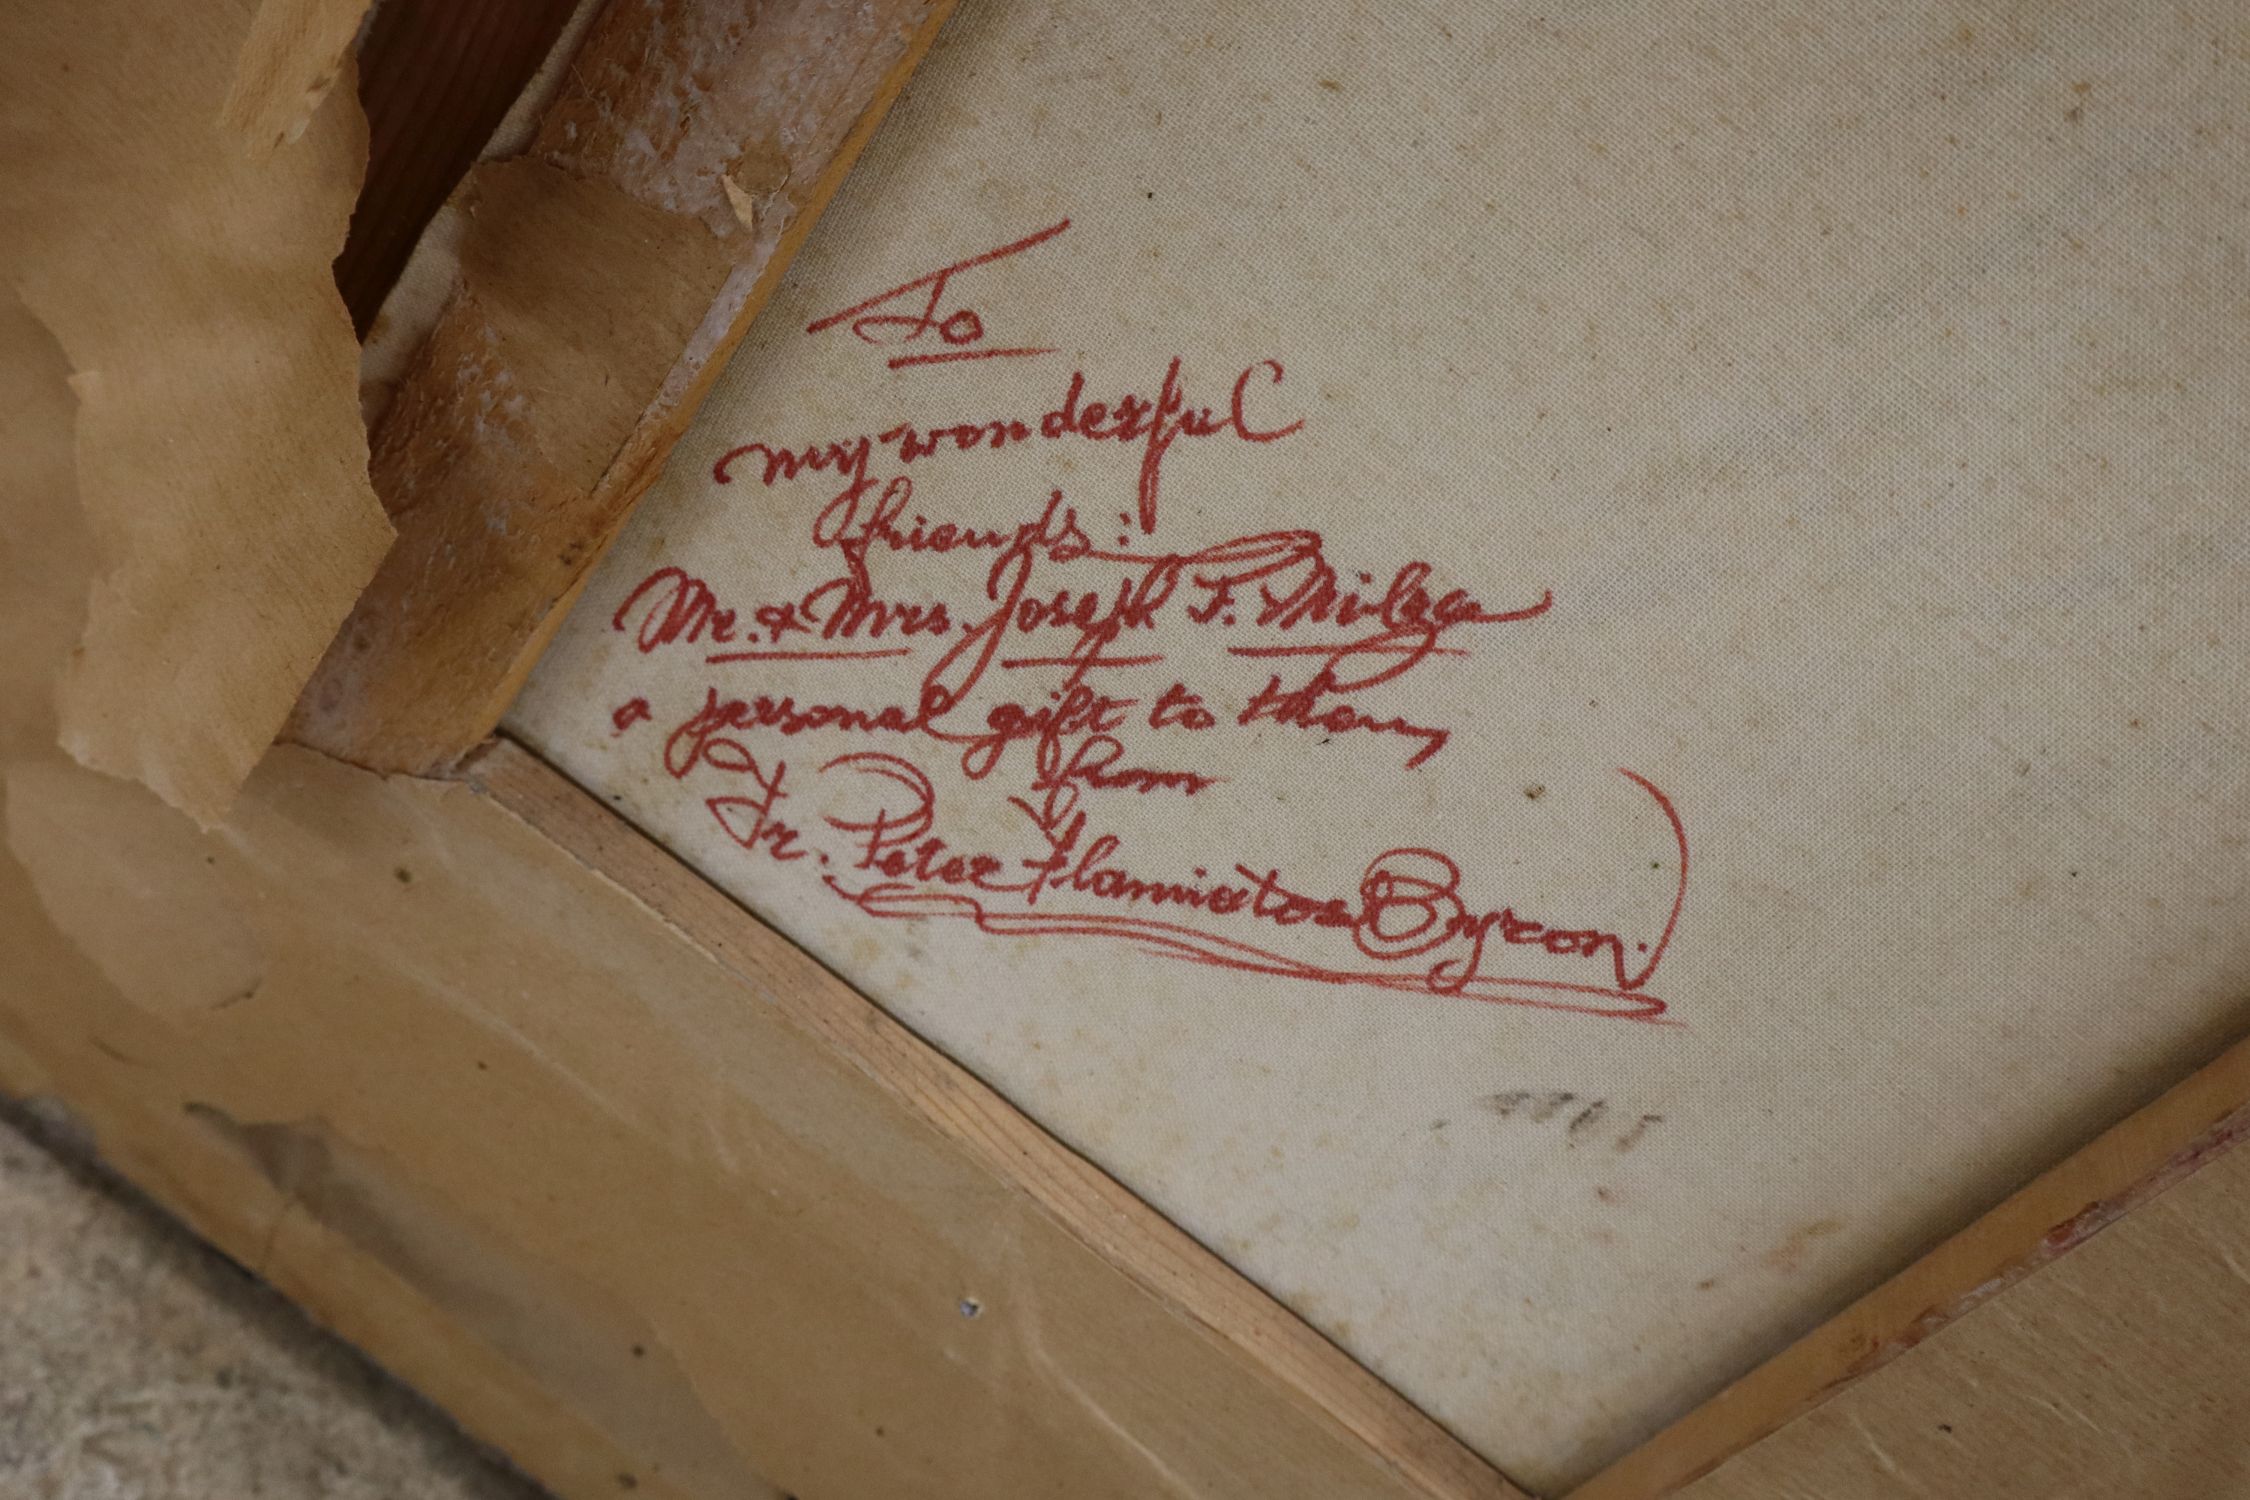 To
my wonderful
friends:
Mr. & Mrs. Joseph F.
a personal gift to them,
from
Fr. Peter Byron.